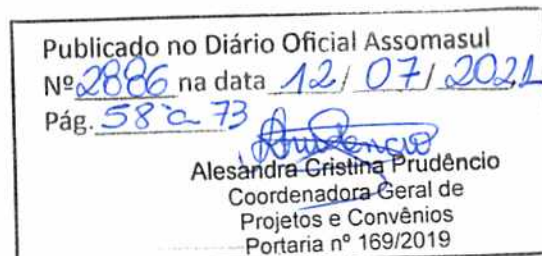 Publicado no Diário Oficial Assomasul
Nº 2886 na data 12/07/2021
Pág. 58 a 73
Prudencio
Alesandra Cristina Prudêncio
Coordenadora Geral de
Projetos e Convênios
Portaria nº 169/2019